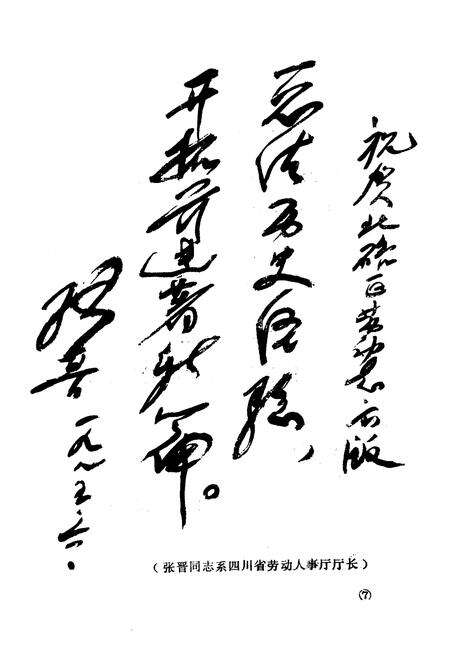 祝贺北碚区劳动志出版
总结历史经验、
开拓前进著新篇。
张晋
一九八五、六.
(张晋同志系四川省劳动人事厅厅长)
⑦